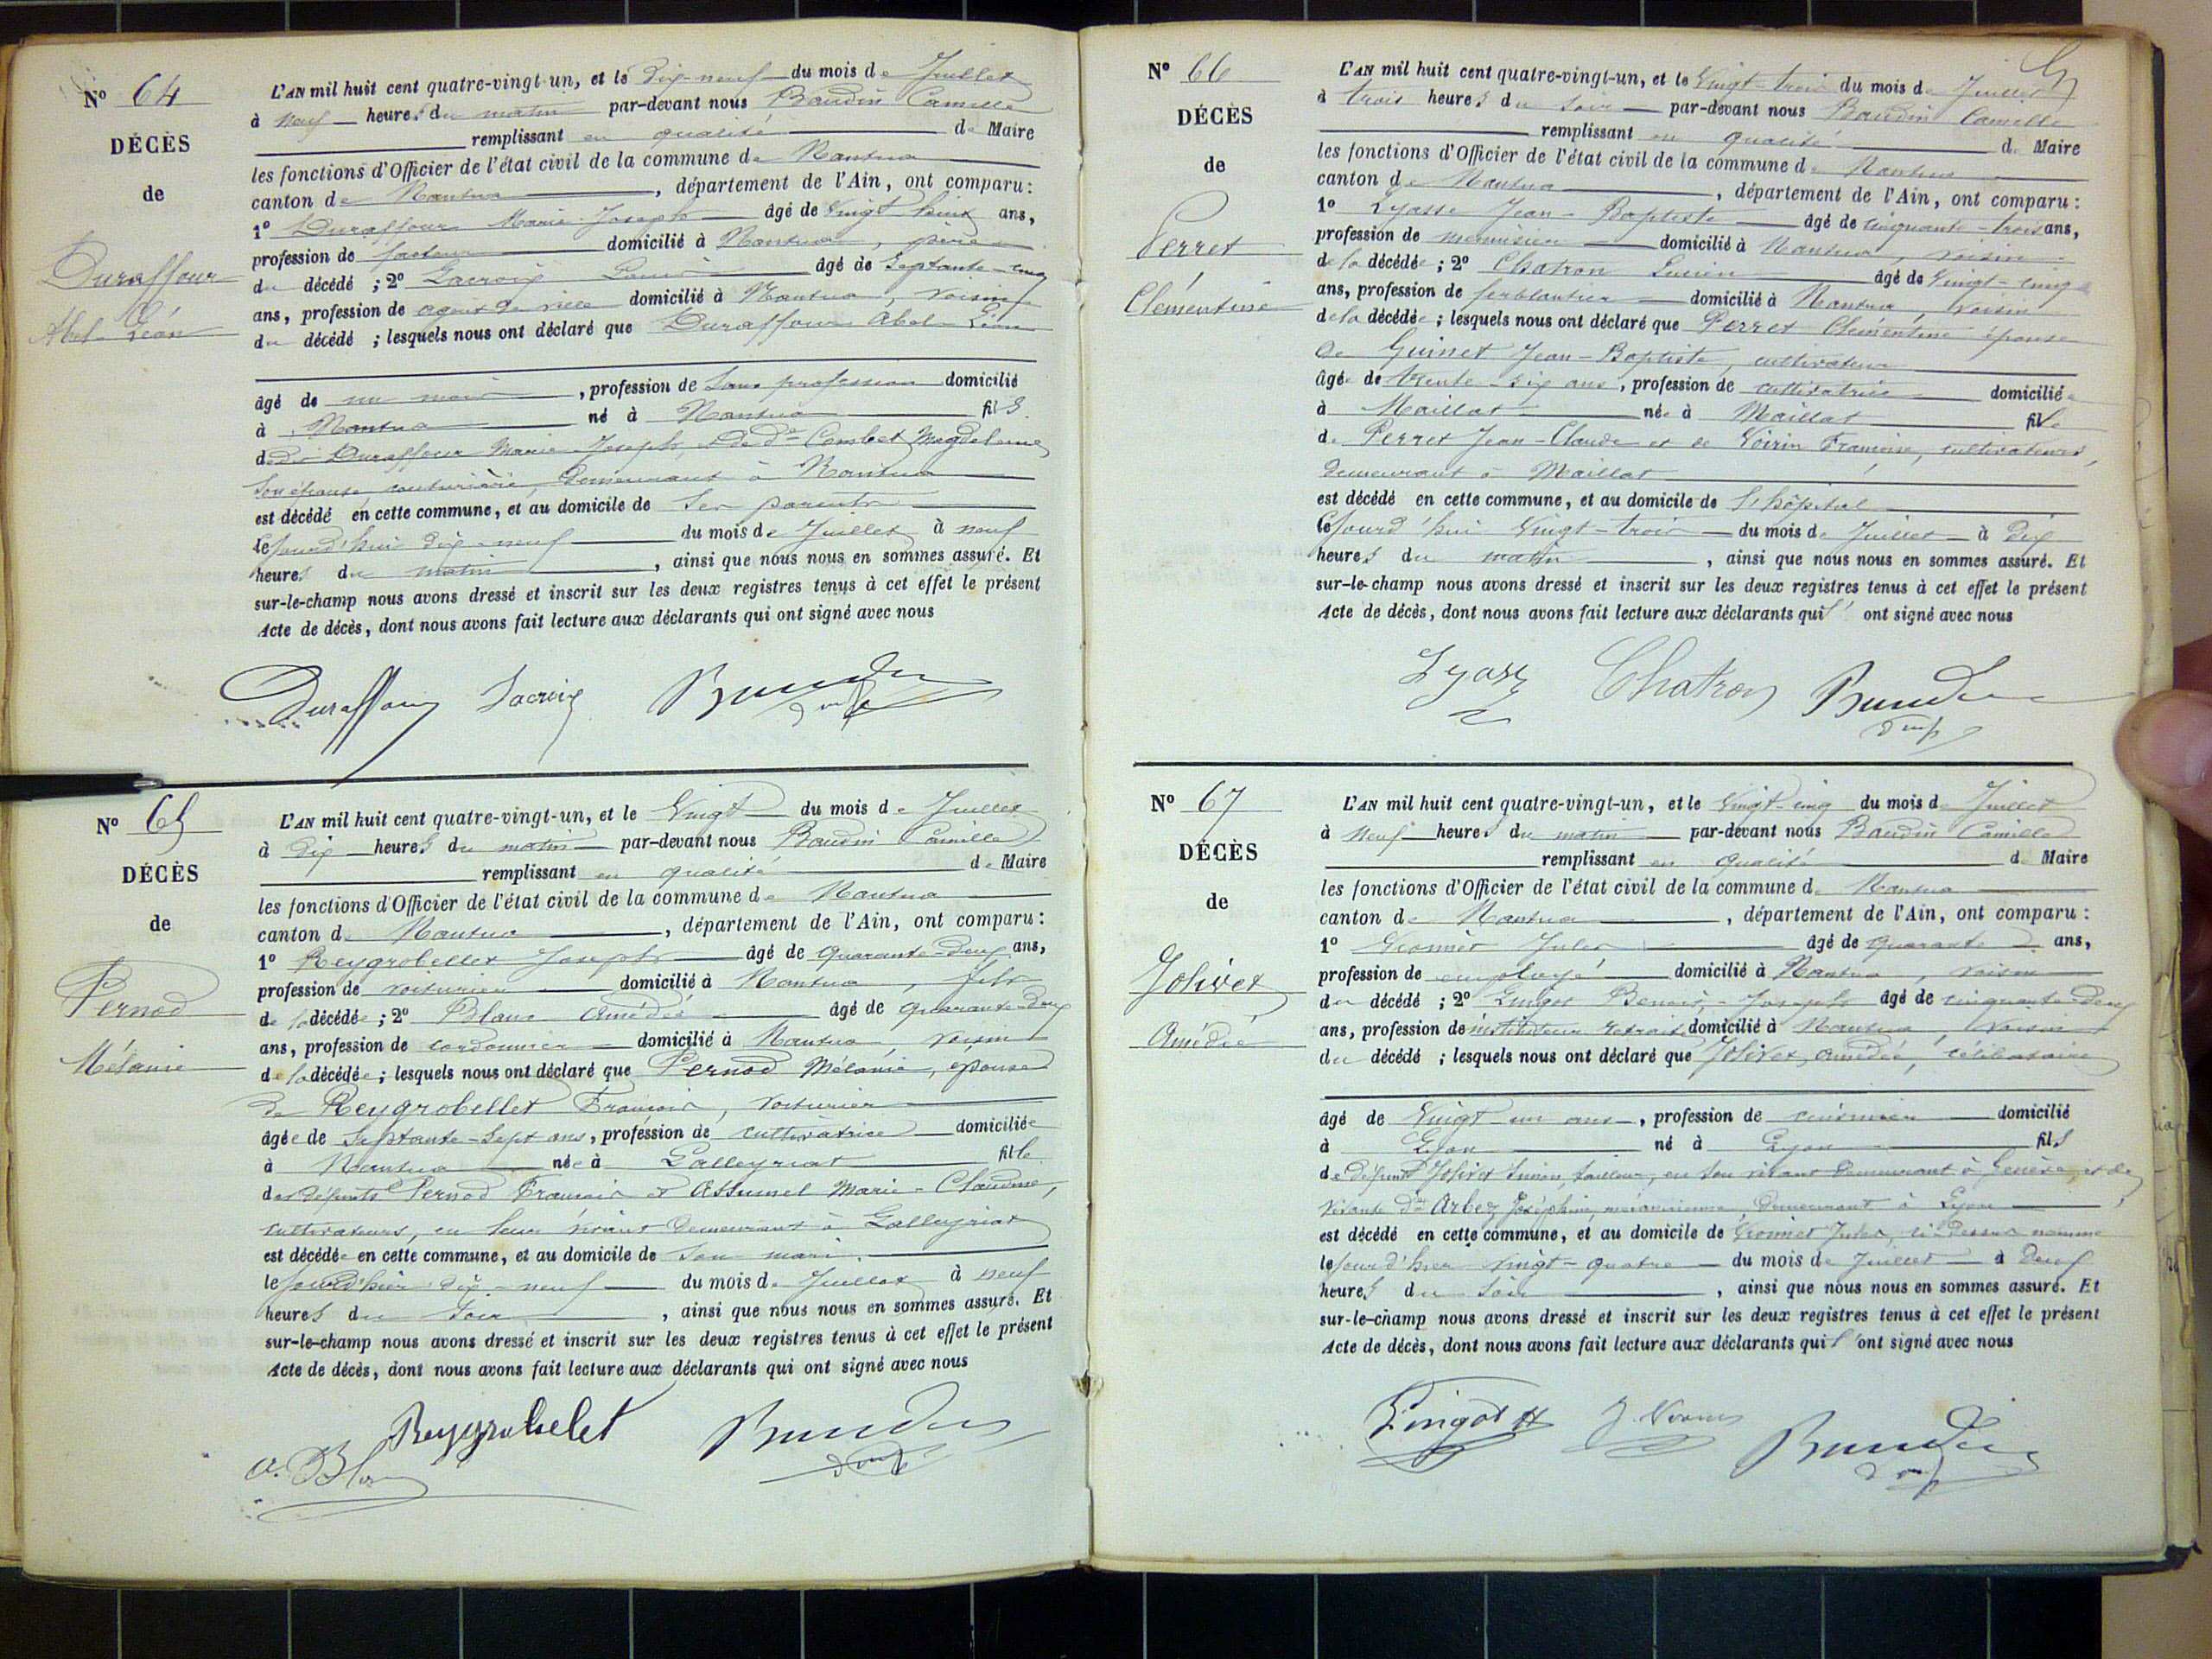 N° 64
DÉCÈS
de
Duraffour
Abel-Léon
L'AN mil huit cent quatre-vingt-un, et le Dix-neuf du mois de Juillet
à neuf heures du matin par-devant nous Baudin Camille
remplissant en qualité de Maire
les fonctions d'Officier de l'état civil de la commune de Nantua
canton de Nantua, département de l'Ain, ont comparu :
1° Duraffour Marie-Joseph âgé de Vingt huit ans,
profession de facteur domicilié à Nantua, père
du décédé ; 2° Lacroix Louis âgé de Septante-cinq
ans, profession de agent de ville domicilié à Nantua, voisin
du décédé ; lesquels nous ont déclaré que Duraffour Abel-Léon
âgé de un mois, profession de Sans profession domicilié
à Nantua né à Nantua fils
de Duraffour Marie-Joseph, et de de Combet Magdeleine
son épouse, couturière, demeurant à Nantua
est décédé en cette commune, et au domicile de Ses parents
lejourd'hui dix-neuf du mois de Juillet à neuf
heures du matin, ainsi que nous nous en sommes assuré. Et
sur-le-champ nous avons dressé et inscrit sur les deux registres tenus à cet effet le présent
Acte de décès, dont nous avons fait lecture aux déclarants qui ont signé avec nous
Duraffour Lacroix Baudin
N° 65
DÉCÈS
de
Pernod
Mélanie
L'AN mil huit cent quatre-vingt-un, et le Vingt du mois de Juillet
à Dix heures du matin par-devant nous Baudin Camille
remplissant en qualité de Maire
les fonctions d'Officier de l'état civil de la commune de Nantua
canton de Nantua, département de l'Ain, ont comparu :
1° Reygrobellet Joseph âgé de quarante-deux ans,
profession de voiturier domicilié à Nantua, fils
de la décédée ; 2° Blanc Amédée âgé de quarante-deux
ans, profession de cordonnier domicilié à Nantua, voisin
de la décédée ; lesquels nous ont déclaré que Pernod Mélanie, épouse
de Reygrobellet François, voiturier
âgée de Septante-Sept ans, profession de cultivatrice domiciliée
à Nantua née à Lalleyriat fille
des défunts Pernod François et Assumel Marie-Claudine,
cultivateurs, en leur vivant demeurant à Lalleyriat
est décédée en cette commune, et au domicile de Son mari
lejourd'hier dix-neuf du mois de Juillet à neuf
heures du soir, ainsi que nous nous en sommes assuré. Et
sur-le-champ nous avons dressé et inscrit sur les deux registres tenus à cet effet le présent
Acte de décès, dont nous avons fait lecture aux déclarants qui ont signé avec nous
Reygrobelet Baudin
a. Blanc
N° 66
DÉCÈS
de
Perret
Clémentine
L'AN mil huit cent quatre-vingt-un, et le Vingt-trois du mois de Juillet
à trois heures du soir par-devant nous Baudin Camille
remplissant en qualité de Maire
les fonctions d'Officier de l'état civil de la commune de Nantua
canton de Nantua, département de l'Ain, ont comparu :
1° Lyasse Jean-Baptiste âgé de cinquante-trois ans,
profession de menuisier domicilié à Nantua, voisin
de la décédée ; 2° Chatron Lucien âgé de Vingt-cinq
ans, profession de ferblantier domicilié à Nantua, voisin
de la décédée ; lesquels nous ont déclaré que Perret Clémentine épouse
de Guinet Jean-Baptiste, cultivateur
âgée de trente-six ans, profession de cultivatrice domiciliée
à Maillat née à Maillat fille
de Perret Jean-Claude et de Voirin Françoise, cultivateurs,
demeurant à Maillat
est décédé en cette commune, et au domicile de l'hôpital
lejourd'hui Vingt-trois du mois de Juillet à Dix
heures du matin, ainsi que nous nous en sommes assuré. Et
sur-le-champ nous avons dressé et inscrit sur les deux registres tenus à cet effet le présent
Acte de décès, dont nous avons fait lecture aux déclarants qui l'ont signé avec nous
Lyasse Chatron Baudin
N° 67
DÉCÈS
de
Jolivet
Amédée
L'AN mil huit cent quatre-vingt-un, et le Vingt-cinq du mois de Juillet
à Neuf heures du matin par-devant nous Baudin Camille
remplissant en qualité de Maire
les fonctions d'Officier de l'état civil de la commune de Nantua
canton de Nantua, département de l'Ain, ont comparu :
1° Jules âgé de quarante ans,
profession de employé domicilié à Nantua, voisin
du décédé ; 2° Benoit-Joseph âgé de cinquante-deux
ans, profession de instituteur retraité domicilié à Nantua, voisin
du décédé ; lesquels nous ont déclaré que Jolivet Amédée, célibataire
âgé de Vingt-un ans, profession de cuisinier domicilié
à Lyon né à Lyon fils
de défunt Jolivet Simon, tailleur, en son vivant demeurant à Genève, et de
vivante de Arbez Joséphine, mécanicienne, demeurant à Lyon
est décédé en cette commune, et au domicile de Jules, ci-dessus nommé
lejourd'hier vingt-quatre du mois de Juillet à Deux
heures du soir, ainsi que nous nous en sommes assuré. Et
sur-le-champ nous avons dressé et inscrit sur les deux registres tenus à cet effet le présent
Acte de décès, dont nous avons fait lecture aux déclarants qui l'ont signé avec nous
Baudin